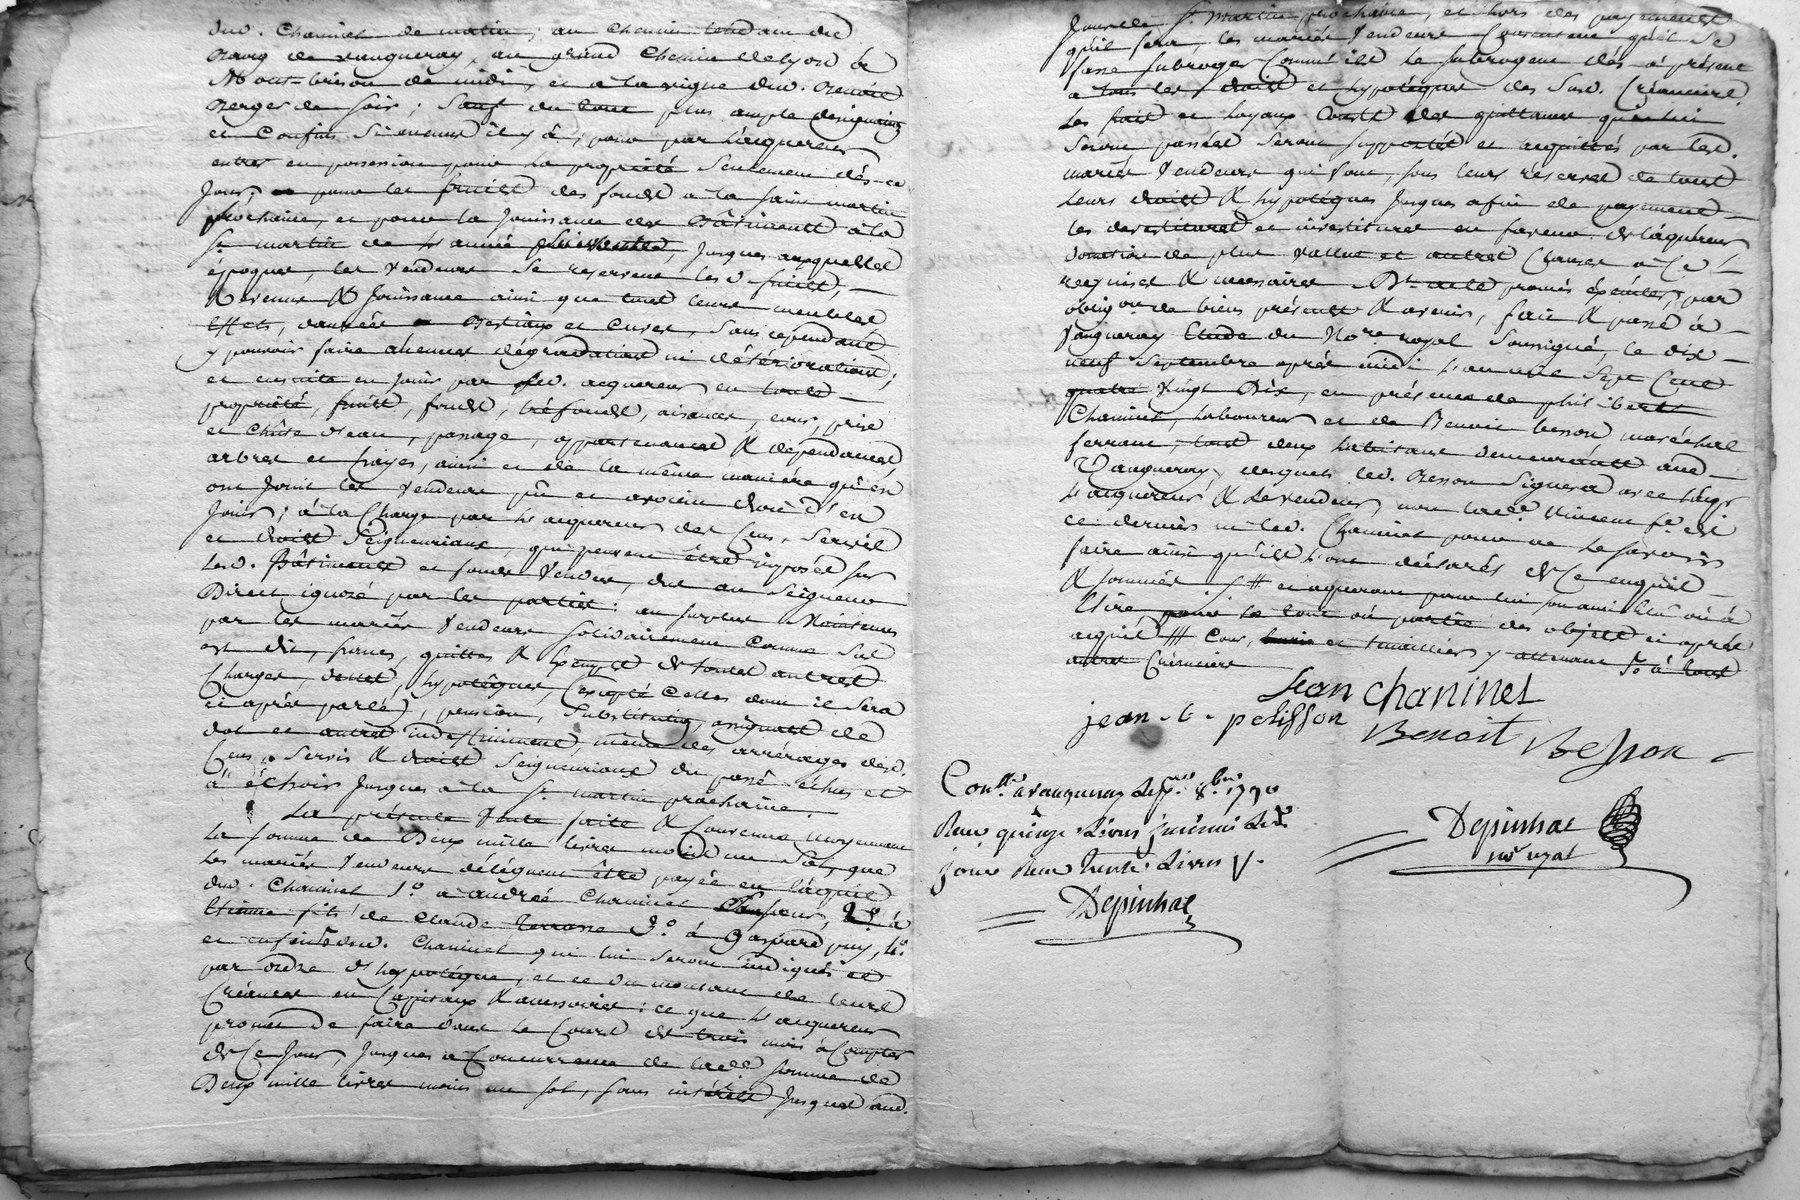 dud. Chaninet de matin; au chemin tendant du
Bourg de vaugneray, au grand Chemin de lyon à
Mont-brison de midi, et a la vigne dud. Benoit
Berger de soir; Sauf du tout plus ample designation
et Confins si aucuns il y à; pour par l'acquereur
entrer en possession pour la propriété Seulement dès-ce
Jour, pour les fruits des fonds à la saint martin
prochaine, et pour la Jouissance des Bâtiments à la
St. martin de l'année suivante, jusques auxquelles
époques, les vendeurs se reservent lesd. fruits,
Revenus & Jouissance ainsi que tous leurs meubles
Effets, danrées Bestiaux et Cuves, sans cependant
y pouvoir faire aucunes dégradations ni détériorations;
et ensuite en jouir par led. acquereur en toute
propriété, fruits, fonds, tréfonds, aisances, cours, prise
et Chûte d'eau, passage, appartenances & dépendances
arbres et hayes, ainsi et de la même manière qu'en
ont joui les vendeurs pû et avoient droit d'en
Jouir; à la Charge par l'acquereur des Cens, Servis
et droits Seigneuriaux, qui peuvent être imposés sur
lesd. Bâtiments et fonds vendus, dus au Seigneur
Direct ignoré par les parties: au surplus Maintenus
par les mariés vendeurs solidairement Comme Sus
est dit, francs, quittes & Exempts de toutes autres
Charges, dettes, hypotêques, (excepté celles dont il sera
ci après parlé), pension, substitution, assignats de
dot et autres indéfiniment même des arrérages desd.
Cens, Servis & droits Seigneuriaux du passé échus et
à échoir jusques à la St. martin prochaine
La présente vente faite & Convenue moyennant
la somme de Deux mille livres moins un Sol, que
les mariés vendeurs délèguent être payée en l'acquit
dud. Chaninet 1o. à andré Chaninet 2o. à
Etienne fils de Claude Terrasse 3o. à Gaspard puy, 4o.
et enfin dud. Chaninet qui lui seront indiqués et
par ordre d'hypotêque, et ce du montant de leurs
Créances en Capitaux & accessoires: ce que l'acquereur
promet de faire dans le Cours de trois mois à Compter
de Ce Jour, jusques a Concurrence de lad. somme de
Deux mille livres moins un sol, sans intérêts jusques aud.
Jour de St. martin prochaine, et lors des payements
qu'il fera, les mariés vendeurs Consentent qu'il se
fasse subroger Comm'ils le subrogent dès-à présent
a tous les droits et hypotêques des susd. Créanciers.
les frais et loyaux Couts des quittances qui lui
Seront passées seront supportés et acquittés par lesd.
mariés vendeurs qui font, sous leurs réserves de tous
leurs droits & hypotêques jusques a fin de payement
les devestitures et investitures en faveur de l'acquereur
donation de plus value et autres Clauses à ce
requises & necessaires. Dt. acte promis éxécuter, par
oblig.on de biens présents & avenir, fait & passé à
Vaugneray Etude du No.re royal Soussigné, le dix
neuf Septembre après midi l'an mil sept Cent
quatre vingt Dix, en présence de philibert
Chaninet, Laboureur et de Benoit besson maréchal
ferrant, tous deux habitans demeurants aud.
Vaugneray desquels led. Besson signera avec
l'acquereur & le vendeur, non lad. Vincent
ce dernier ni led. Chaninet pour ne le savoir
faire ainsi qu'ils l'ont déclarés de ce enquis
& sommés. /# et acquerant pour lui son ami
Elire pour le tout ou partie des objets ci après
acquis /// Cour, et tuailliers y attenant 5o à tout
autres Créanciers
Jean Chaninet
jean-b. pelisson
Benoit Besson
Conllé. a vaugneray le 8.bre 1790
Reçu quinze Livres
Reçu trente Livres
Depinhac
Depinhac
No. royal